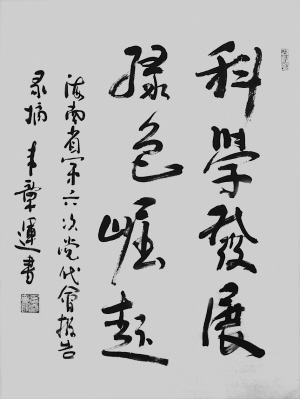 科學發展
绿色崛起
海南省第六次党代會报告
录摘 韦章運書